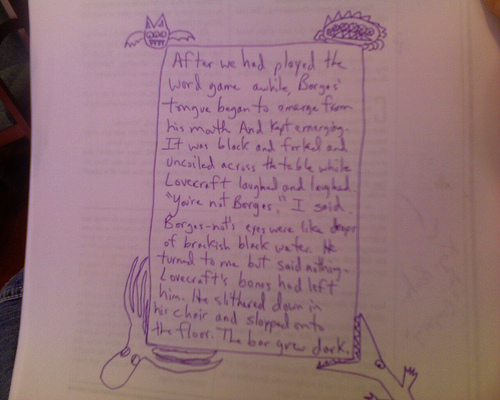 After we had played the
word game awhile, Borges'
tongue began to emerge from
his mouth And kept emerging.
It was black and forked and
uncoiled across the table while
Lovecraft laughed and laughed.
"You're not Borges," I said.
Borges-not's eyes were like drops
of brackish black water. He
turned to me but said nothing.
Lovecraft's bones had left
him. He slithered down in
his chair and slopped onto
the floor. The bar grew dark.